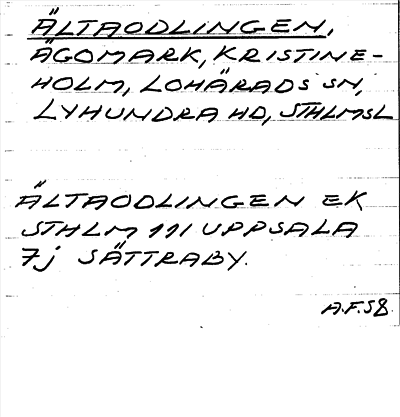 ÄLTAODLINGEN,
ÄGOMARK, KRISTINE-
HOLM, LOHÄRADS SN,
LYHUNDRA HD, STHLMSL
ÄLTAODLINGEN EK
STHLM 111 UPPSALA
7j SÄTTRABY.
A.F.58